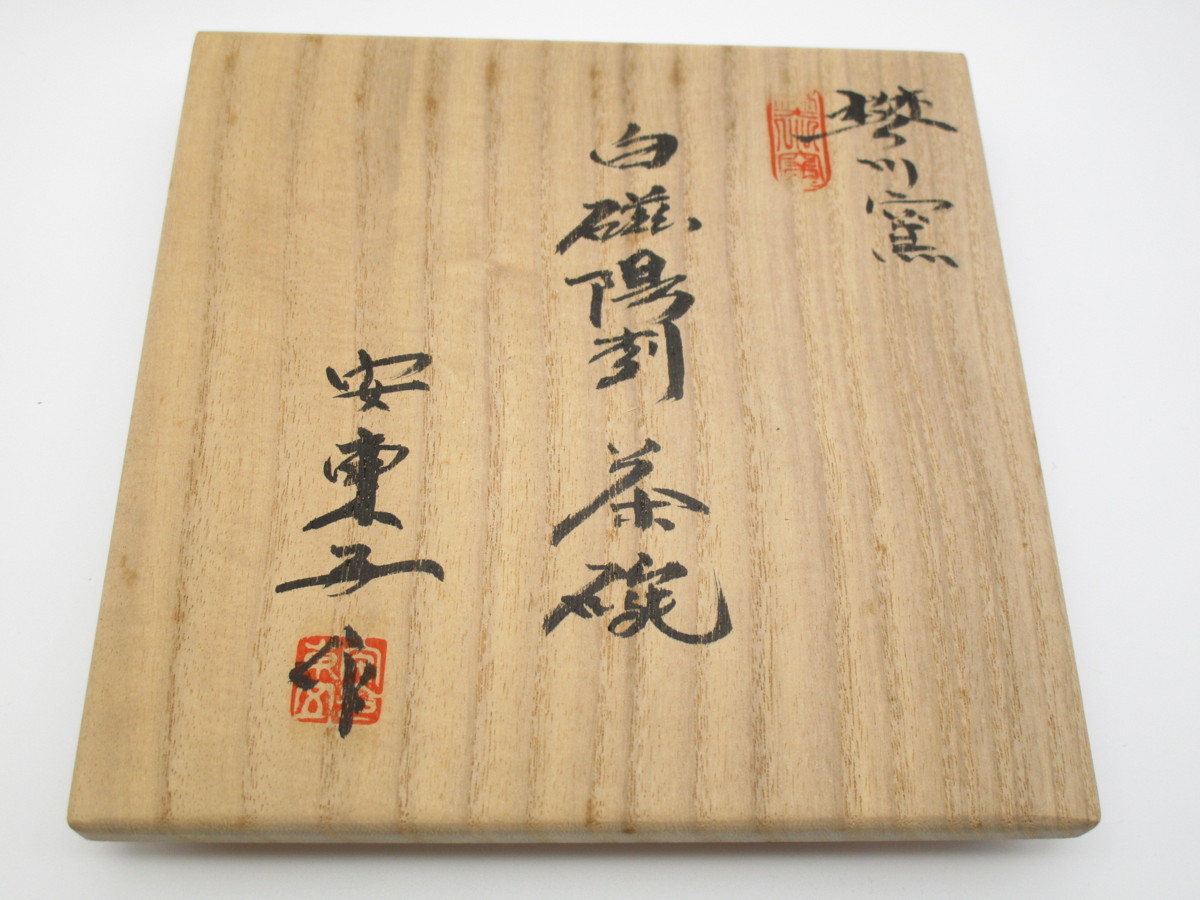 樊川窯
白磁陽刻 茶碗
安東五 作